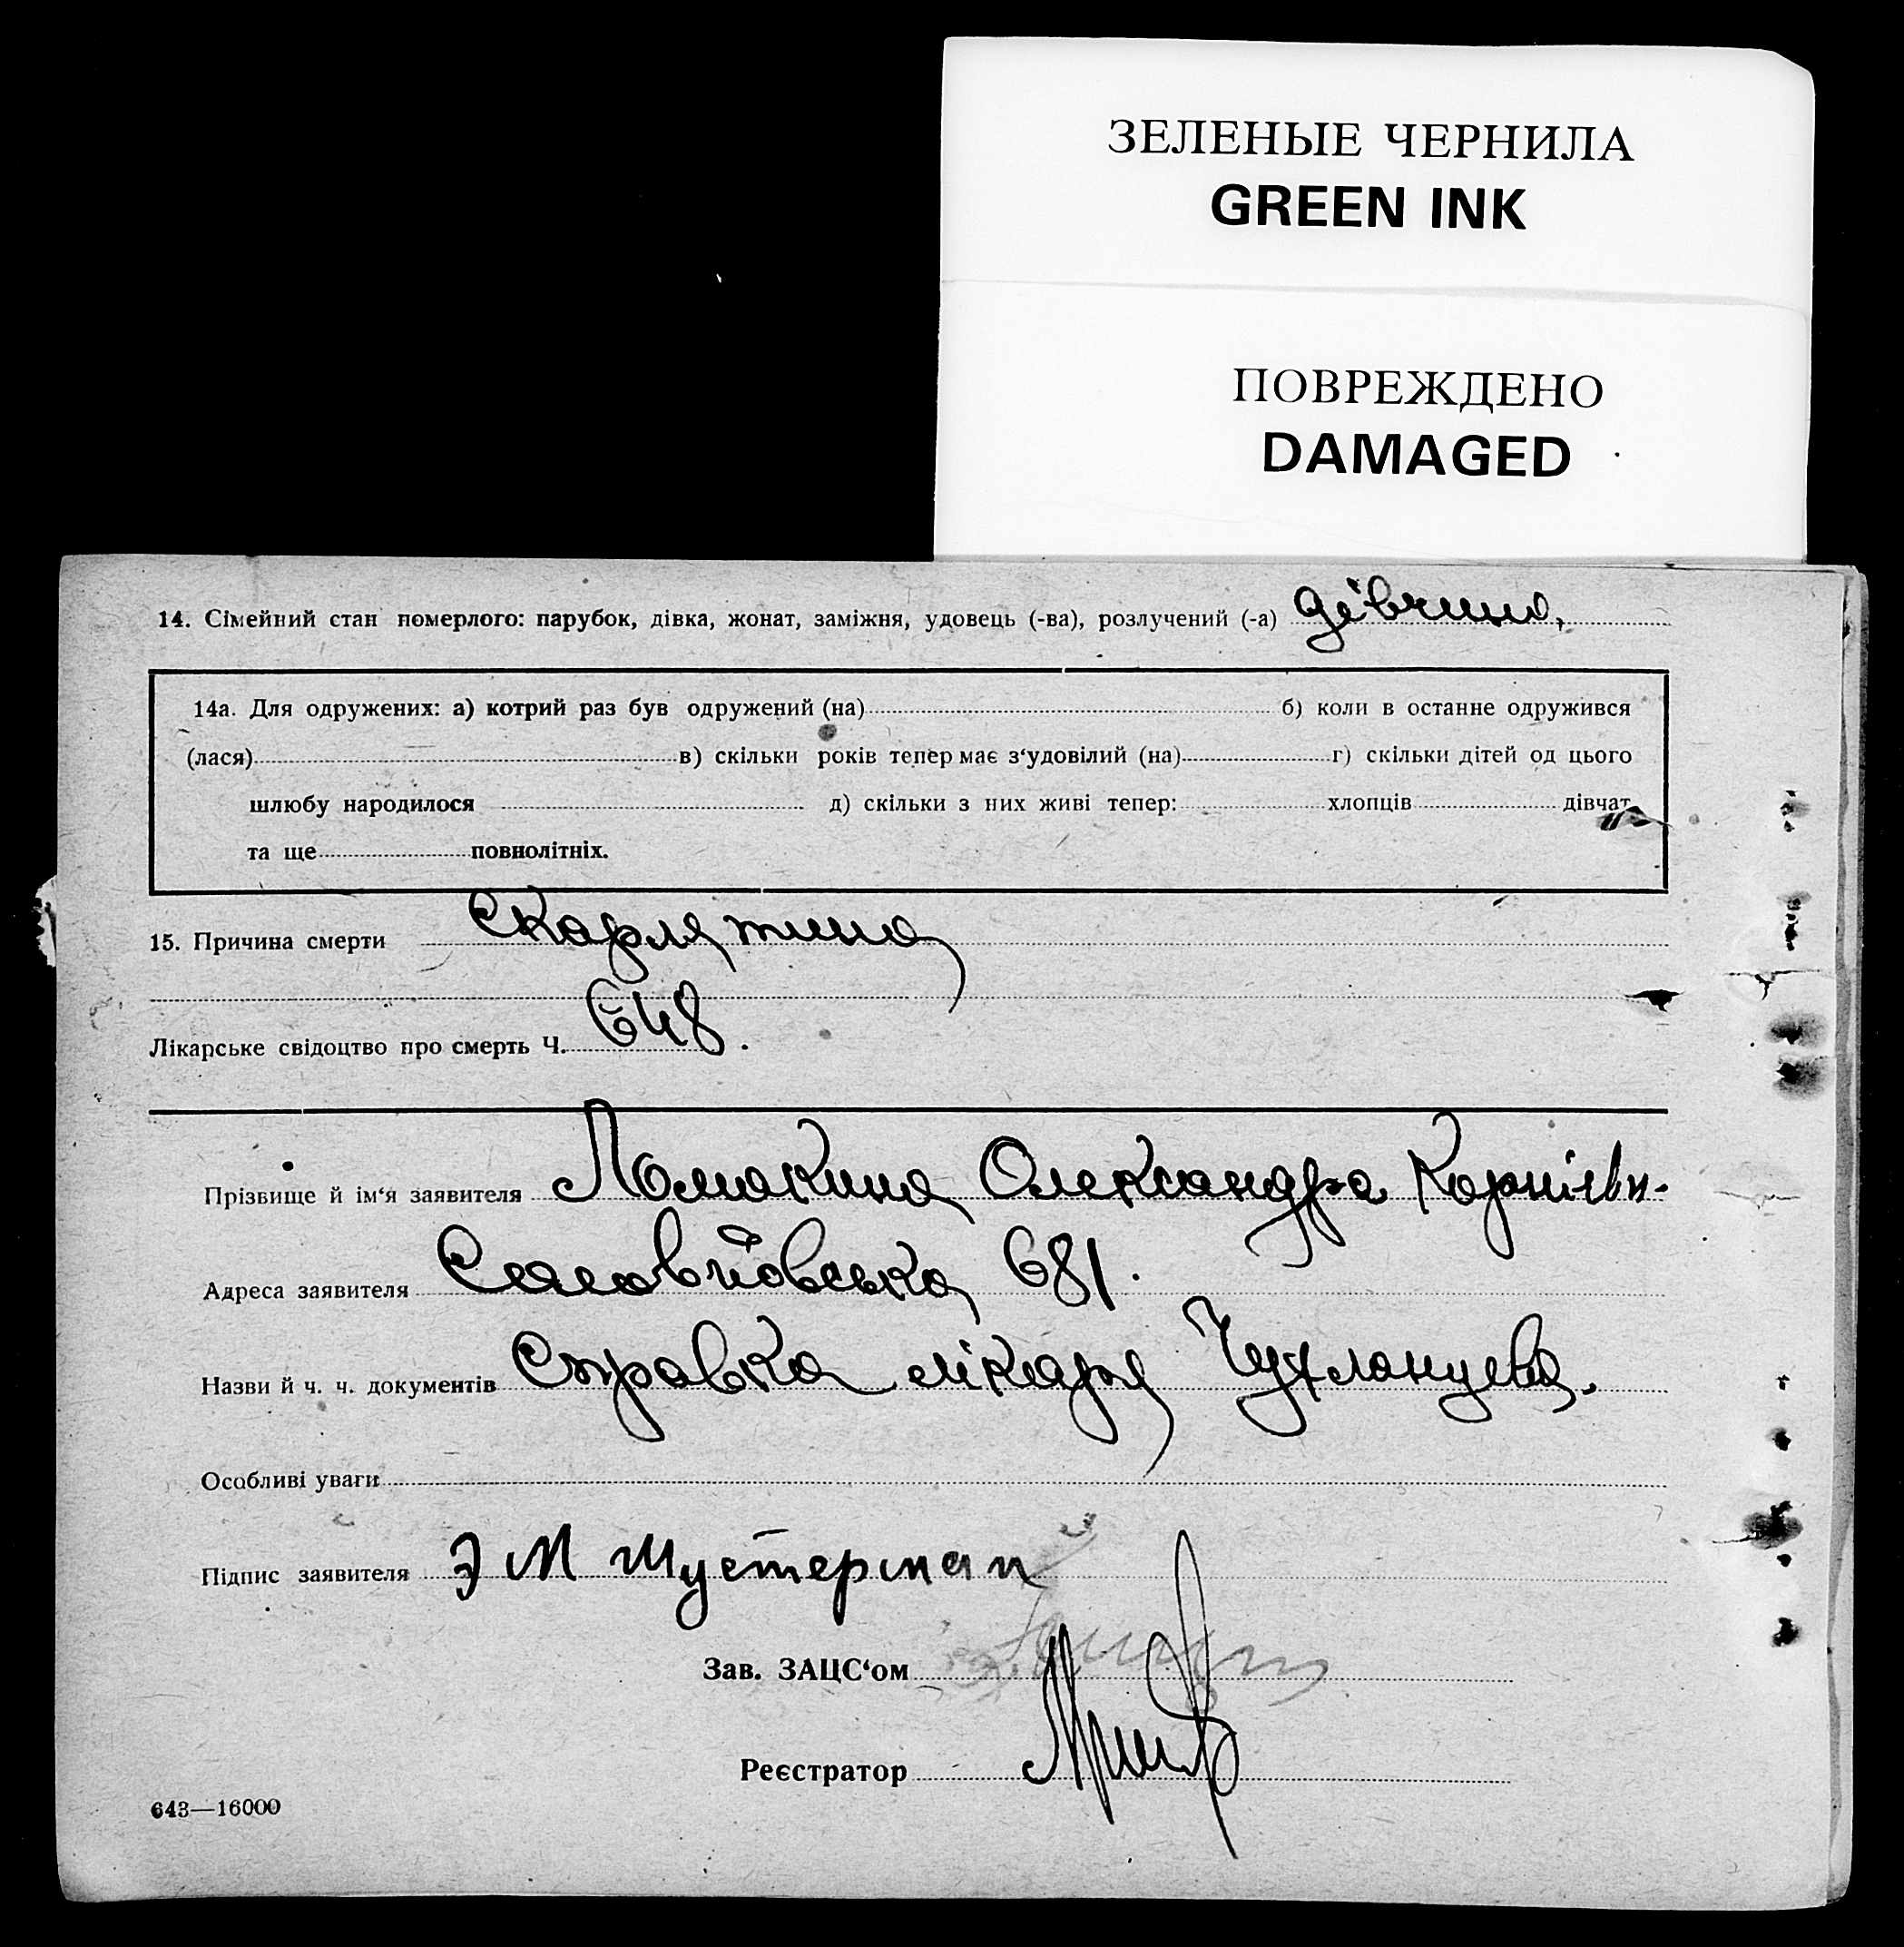 ЗЕЛЕНЫЕ ЧЕРНИЛА
GREEN INK
ПОВРЕЖДЕНО
DAMAGED
14. Сімейний стан померлого: парубок, дівка, жонат, заміжня, удовець (-ва), розлучений (-а) дівчина,
14а. Для одружених: а) котрий раз був одружений (на) б) коли в останнє одружився
(лася) в) скільки років тепер має з‘удовілий (на) г) скільки дітей од цього
шлюбу народилося д) скільки з них живі тепер: хлопців дівчат
та ще повнолітніх.
15. Причина смерти Скарлятина
Лікарське свідоцтво про смерть Ч. 648.
Прізвище й ім‘я заявителя Ломакина Олександра Корнієвн.
Адреса заявителя 681.
Назви й ч. ч. документів Справка лікаря Чухланцева.
Особливі уваги
Підпис заявителя Э М Шустерман
Зав. ЗАЦС‘ом
Реєстратор
643—16000